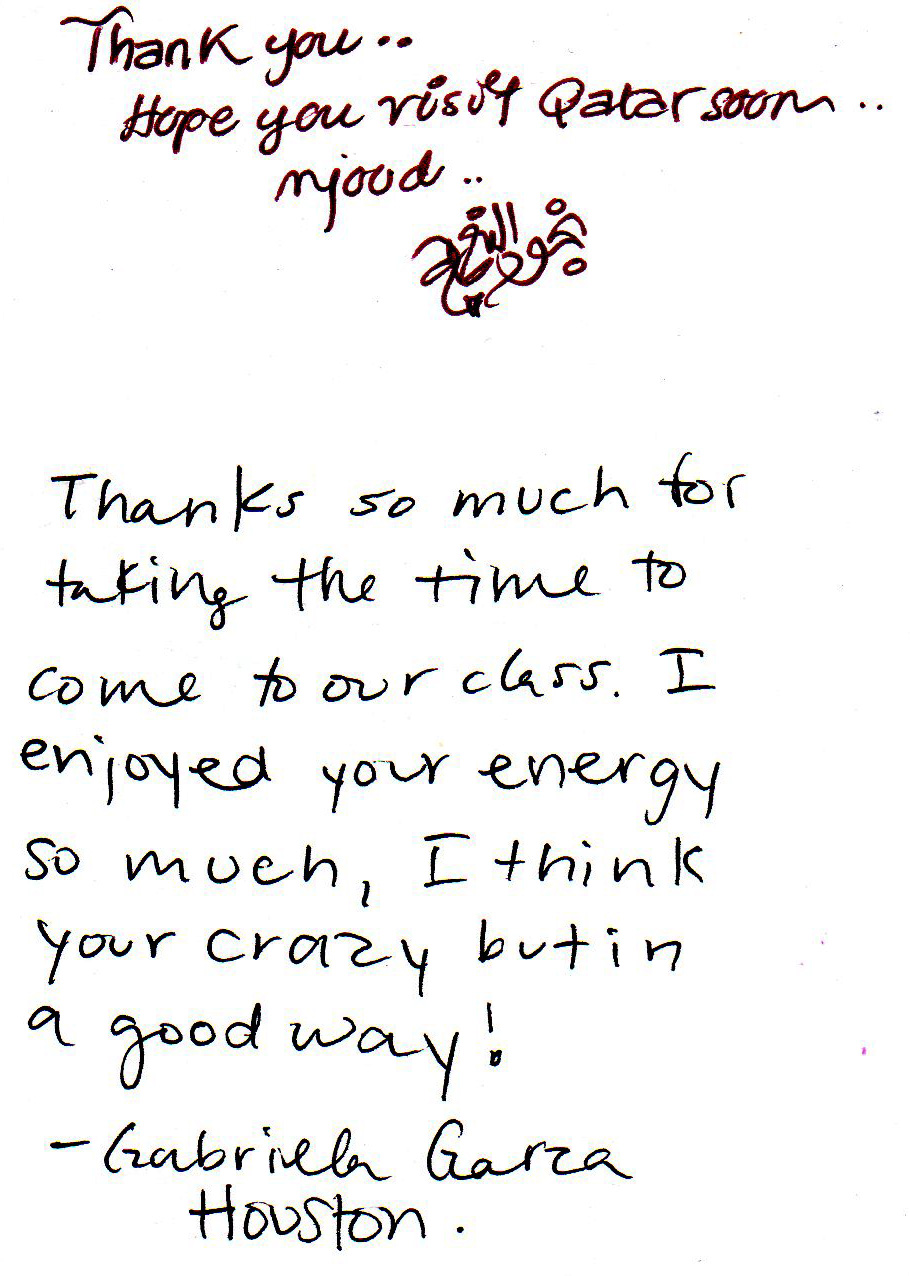 Thank you..
Hope you visit Qatar soon..
njood..
Thanks so much for
taking the time to
come to our class. I
enjoyed your energy
so much, I think
your crazy but in
a good way!
-Gabriela Garza
Houston.